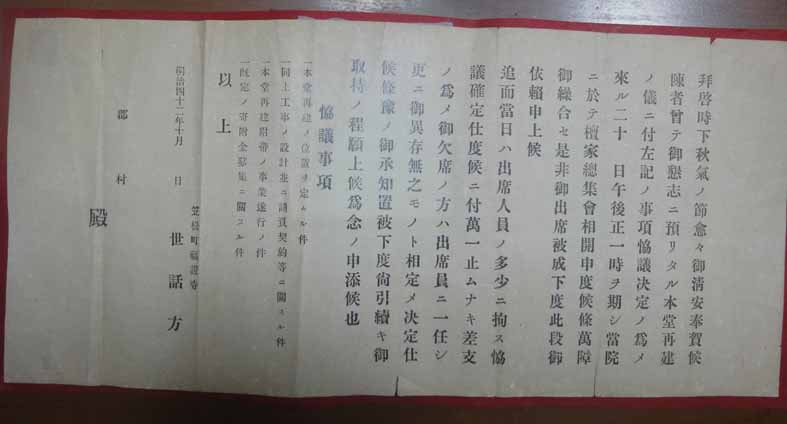 拜啓時下秋氣ノ節愈々御淸安奉賀候
陳者曾テ御懇志ニ預リタル本堂再建
ノ儀ニ付左記ノ事項恊議決定ノ爲メ
來ル二十 日午後正一時ヲ期シ當院
ニ於テ檀家總集會相開申度候條萬障
御繰合セ是非御出席被成下度此段御
依賴申上候
追而當日ハ出席人員ノ多少ニ拘ス恊
議確定仕度候ニ付萬一止ムナキ差支
ノ爲メ御欠席ノ方ハ出席員ニ一任シ
更ニ御異存無之モノト相定メ决定仕
候條豫ノ御承知置被下度尙引續キ御
取持ノ程願上候爲念ノ申添候也
恊議事項
一本堂再建ノ位置ヲ定ムル件
一同上工事ノ設計並ニ請負契約等ニ關スル件
一本堂再建附帶ノ事業遂行ノ件
一既定ノ寄附金募集ニ關スル件
以上
明治四十二年十月 日
笠松町福證寺
世話方
郡 村
殿